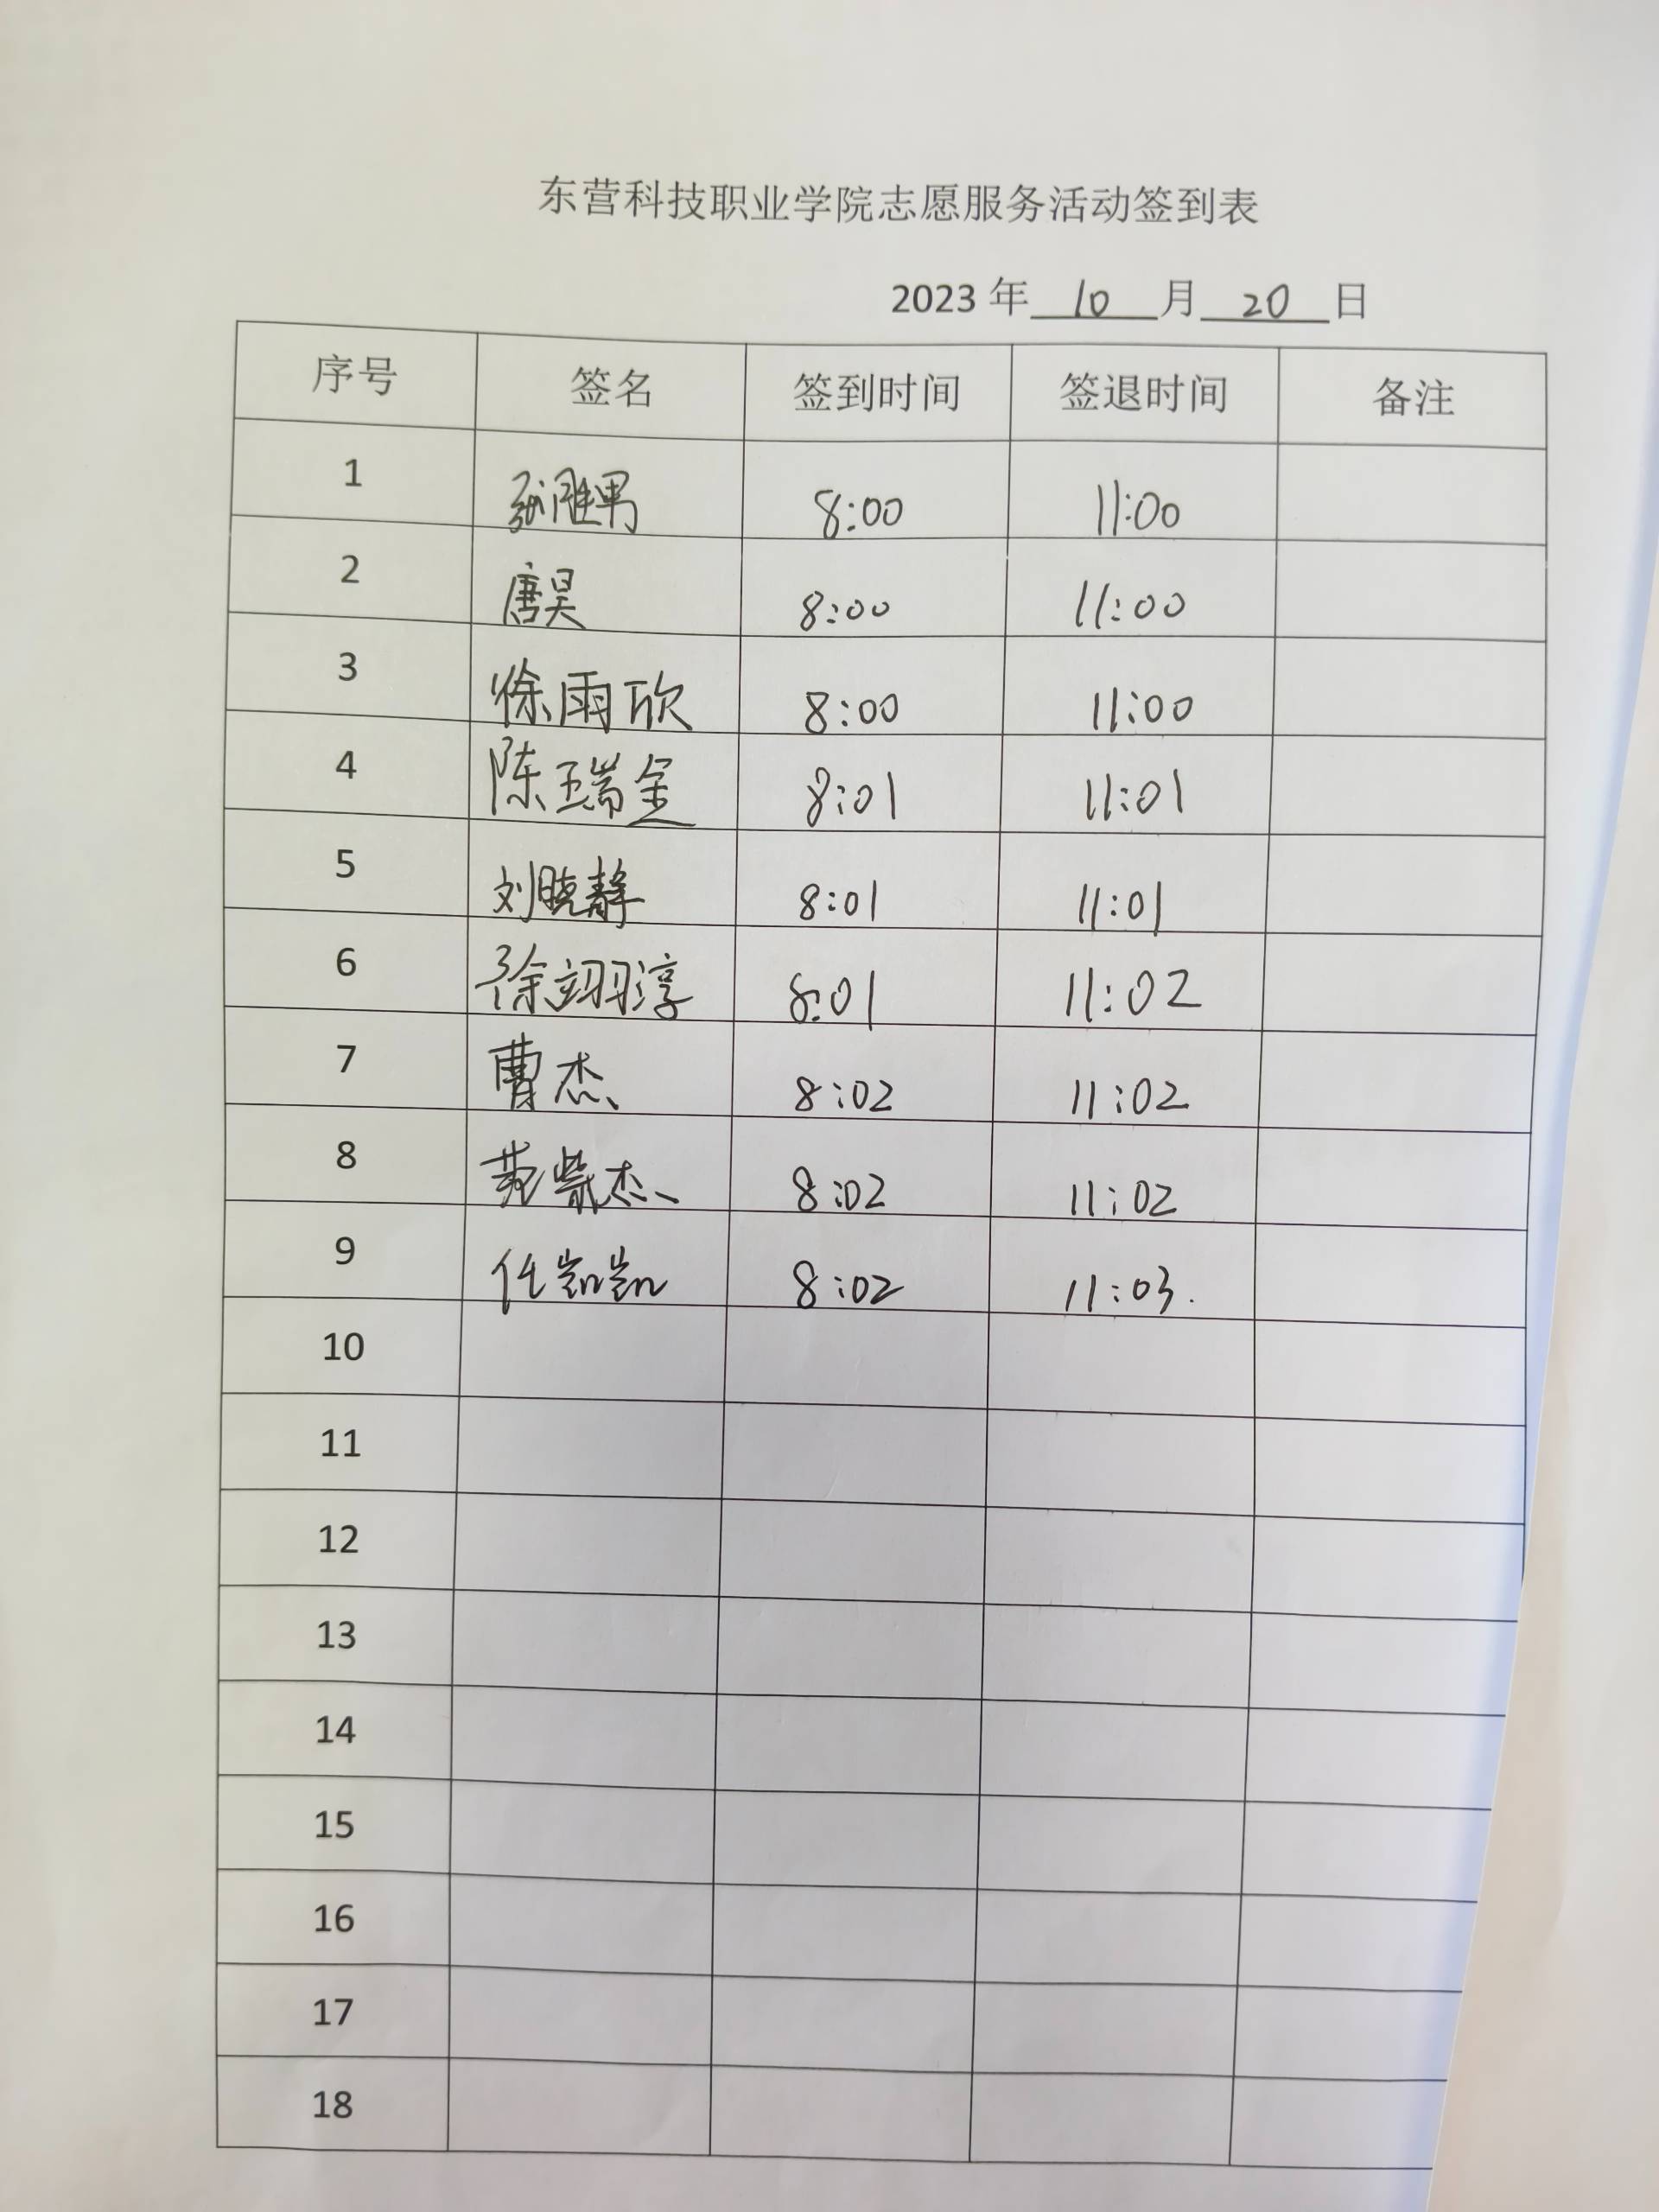 东营科技职业学院志愿服务活动签到表
2023 年 10 月 20 日
序号 签名 签到时间 签退时间 备注
1 胜男 8:00 11:00
2 唐昊 8:00 11:00
3 徐雨欣 8:00 11:00
4 陈瑞金 8:01 11:01
5 刘晓静 8:01 11:01
6 徐翊淳 8:01 11:02
7 曹杰 8:02 11:02
8 紫杰 8:02 11:02
9 任凯凯 8:02 11:03.
10
11
12
13
14
15
16
17
18